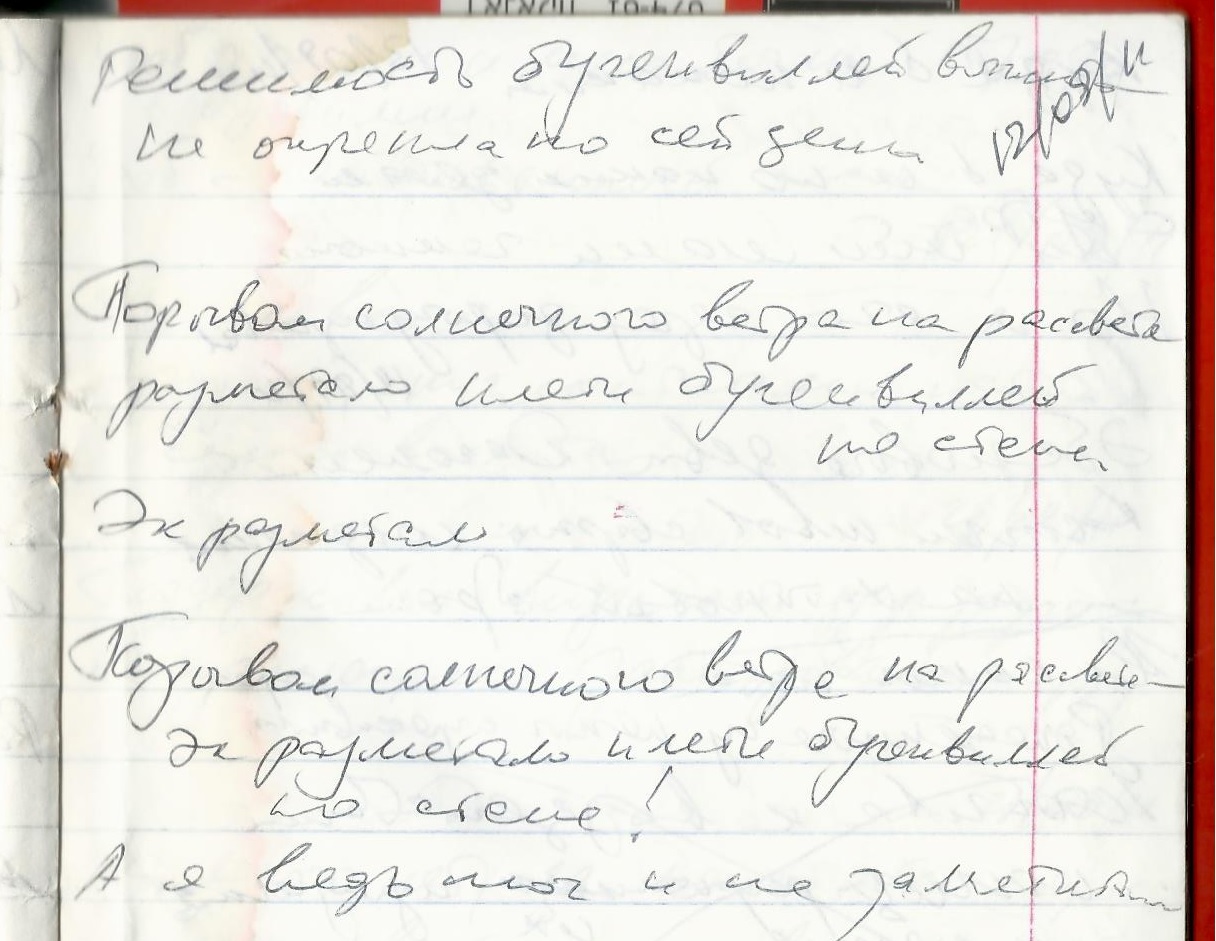 Решимость бугенвиллей
не окрепла по сей день
Порывом солнечного ветра на рассвете
разметало плети бугенвиллей
по стене
Эк разметало
Порывом солнечного ветра на рассвете –
Эк разметало плети бугенвиллей
по стене!
А я ведь мог и не заметить...